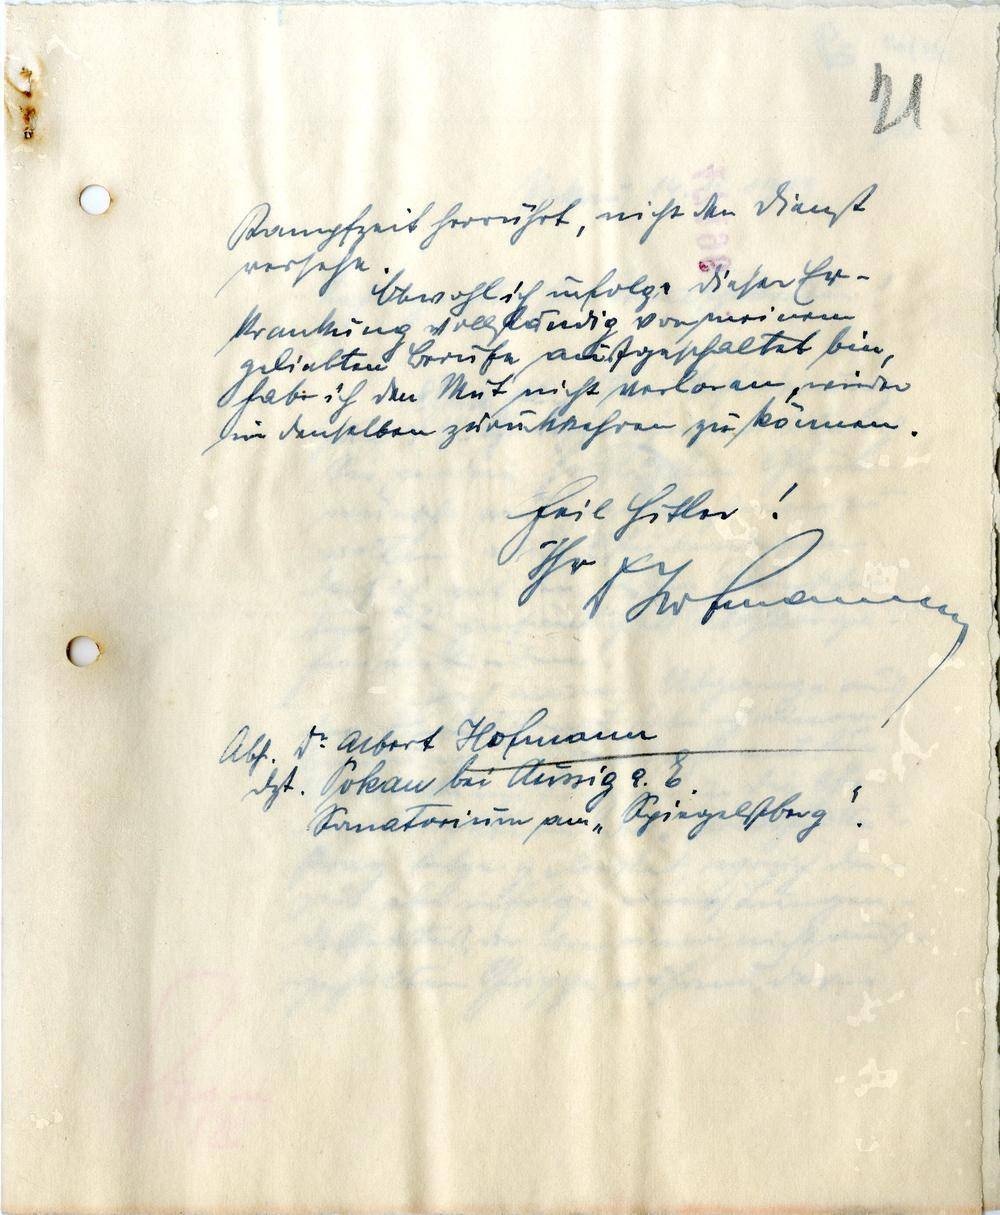 21
Kampfzeit herrührt, nicht den Dienst
versehe.
Obwohl ich infolge dieser Er-
krankung vollständig von meinem
geliebten Berufe ausgeschaltet bin,
habe ich den Mut nicht verloren, wieder
in denselben zurückkehren zu können.
Heil Hitler!
Ihr Hofmann
Abs. Dr Albert Hofmann
dzt. Pokau bei Aussig a. E.
Sanatorium am „Spiegelsberg"!